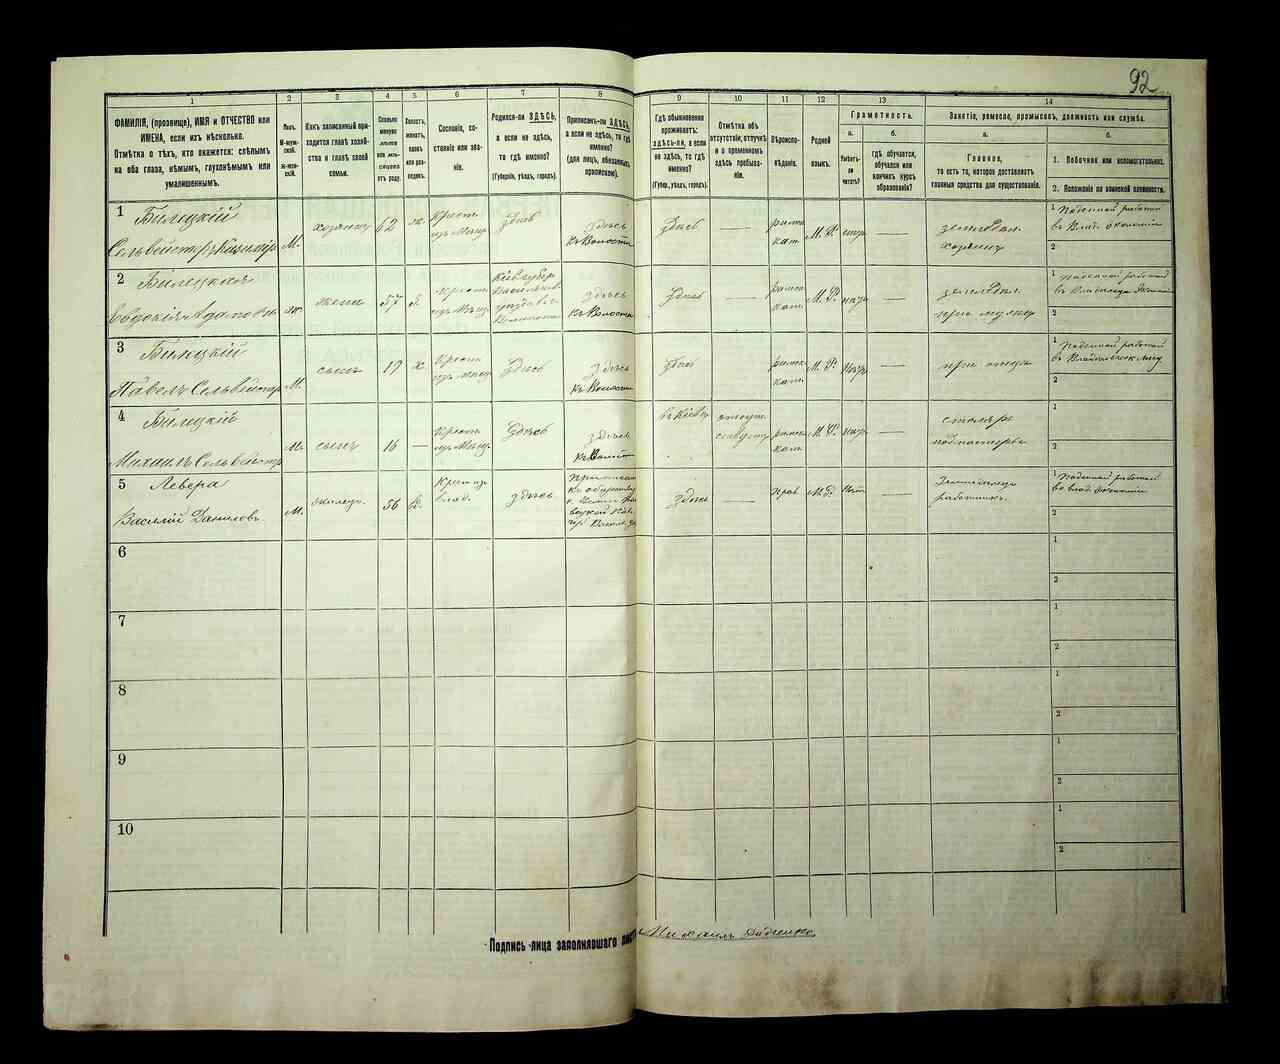 92
1
2
3
4
5
6
7
8
9
10
11
12
13
14
ФАМИЛІЯ, (прозвище), ИМЯ и ОТЧЕСТВО или
ИМЕНА, если ихъ нѣсколько.
Отмѣтка о тѣхъ, кто окажется: слѣпымъ
на оба глаза, нѣмымъ, глухонѣмымъ или
умалишеннымъ.
Полъ.
М-муж-
ской.
ж-жен-
скій.
Какъ записанный при-
ходится главѣ хозяй-
ства и главѣ своей
семьи.
Сколько
минуло
лѣтъ
или мѣ-
сяцевъ
отъ роду.
Холостъ,
женатъ,
вдовъ
или раз-
веденъ.
Сословіе, со-
стояніе или зва-
ніе.
Родился-ли ЗДѢСЬ,
а если не здѣсь,
то гдѣ именно?
(Губернія, уѣздъ, городъ).
Приписанъ-ли ЗДѢСЬ,
а если не здѣсь, то гдѣ
именно?
(для лицъ, обязанныхъ
припискою).
Гдѣ обыкновенно
проживаетъ:
здѣсь-ли, а если
не здѣсь, то гдѣ
именно?
(Губер., уѣздъ, городъ).
Отмѣтка объ
отсутствіи, отлучкѣ
и о временномъ
здѣсь пребыва-
ніи.
Вѣроиспо-
вѣданіе.
Родной
языкъ.
Грамотность.
а.
Умѣетъ-
ли
читать?
б.
гдѣ обучается,
обучался или
кончилъ курсъ
образованія?
Занятіе, ремесло, промыселъ, должность или служба.
а.
Главное,
то есть то, которое доставляетъ
главныя средства для существованія.
б.
1. Побочное или вспомогательное.
2. Положеніе по воинской повинности.
1 Билецкій
Сельвейстеръ Казимір
М.
хозяинъ
62
ж.
Крест.
изъ Мѣщ.
Здѣсь
Здѣсь
къ Волости
Здѣсь
—
римк
кат.
М. Р.
негр.
—
земледѣл.
хозяинъ
1 Поденной работой
2
2 Билецкая
Евдокія Адамовна
ж.
жена
57
З.
Крест.
изъ Мѣщ.
Кіев губер
Васильков
Здѣсь
къ Волости
Здѣсь
—
римск
кат.
М. Р.
негр
—
земледѣл.
при мужѣ
1 Поденной работой
2
3 Билецкій
Павелъ Сельвейстр
М.
сынъ
19
х.
Крест
изъ Мѣщ
Здѣсь
Здѣсь
къ Волости
Здѣсь
римк
кат.
М. Р.
негр.
—
при отцѣ
1 Поденной работой
2
4 Билецкій
Михаилъ Сельвейстр
М.
сынъ
16
—
Крест
изъ Мѣщ.
Здѣсь
Здѣсь
къ Волости
въ Кіевѣ
римск
кат.
М. Р.
негр.
—
столяръ
подмастерье
1
2
5 Левера
Василій Даниловъ.
М.
жилецъ.
56
В.
Крест изъ
влад.
Здѣсь.
Здѣсь
—
прав.
М. Р.
Нет.
—
Земледѣлецъ
работникъ.
1 Поденной работой
2
6
1
2
7
1
2
8
1
2
9
1
2
10
1
2
Подпись лица заполнявшаго листъ Михаилъ